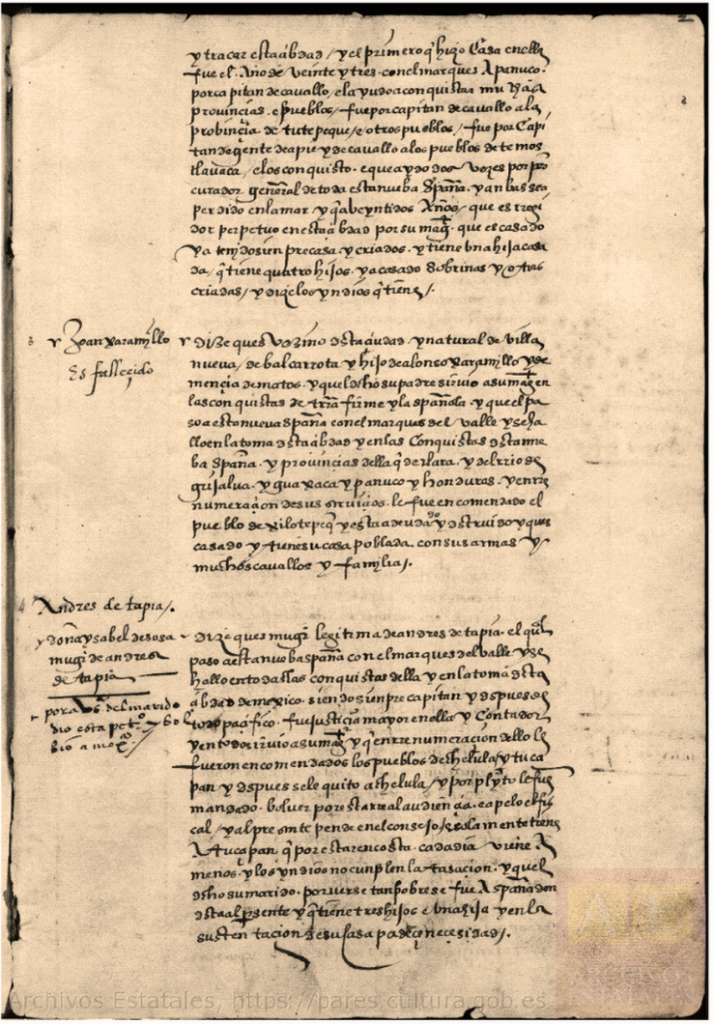 2
y traçar esta çibdad / y el primero q̃ hizo Casa en ella
fue el Año de veinte y tres. con el marques A panuco.
por capitan de cavallo, e la yudo a conquistar muchas
provinçias. e pueblos / fue por capitan de cavallo a la
probinçia de tutepeque / e otros pueblos / fue por Capi
tan de gente de a pie y de cavallo a los pueblos de
tlavaca / e los conquisto. e que a ydo dos vezes por pro
curador general de toda esta nueba España. y anbas se a
perdido en la mar y q̃ a veyntidos Años / que es regi
dor perpetuo en esta çibdad por su mag. que es casado
y a tenido sienpre casa y criados. y tiene una hija casa
da / q̃ tiene quatro hijos. y a casado sobrinas y otras
criadas / y dize los yndios q̃ tiene /.
3 Joan Xaramyllo
Es falleçido
y dize ques vezino desta çiudad y natural de villa
nueva / de balcarrota y hijo de alonso xaramyllo y de
mençia de matos. y quel dicho su padre sirvio a su mag. en
las conquistas de trr̃a firme y la española. y quel pa
so a esta nueva españa con el marques del valle y se ha
llo en la toma desta çibdad y en las Conquistas desta nue
ba España. y provinçias della y del rrio de
grijalva. y guaxaca y panuco y honduras. y en rre
numeraçion de sus serviçios. le fue encomendado el
pueblo de xilotepeq̃ y esta y destruido y ques
casado y tiene su casa poblada. con sus armas y
muchos cavallos y familia /.
4 Andres de tapia /.
y doña ysabel de sosa
muger de andres
de tapia
por a vs̃ del marido
dio esta pet.º
bio a mex.º
dize ques muger legitima de andres de tapia. el qual
paso a esta nueba españa con el marques del valle y se
hallo en todas las conquistas della y en la toma desta
çibdad de mexico. siendo sienpre capitan y despues de
todo paçifico. fue justiçia mayor en ella y Contador
y en todo sirvio a su mag. y q̃ en rrenumeraçion dello le
fueron encomendados los pueblos de chelula / y tuca
pan y despues se le quito a chelula / y por pleyto le fue
mandado bolver por esta rreal audiençia. e apelo el fis
cal / y al presente pende en el consejo / e solamente tiene
A tucapan q̃ por estar en costa. cada dia viene A
menos. y los yndios no cunplen la tasaçion. y quel
dicho su marido. por verse tan pobre se fue A españa don
de sta al presente y q̃ tiene tres hijos e una hija y en la
sustentaçion de su casa padeçe neçesidad /.
Archivos Estatales, https://pares.cultura.gob.es